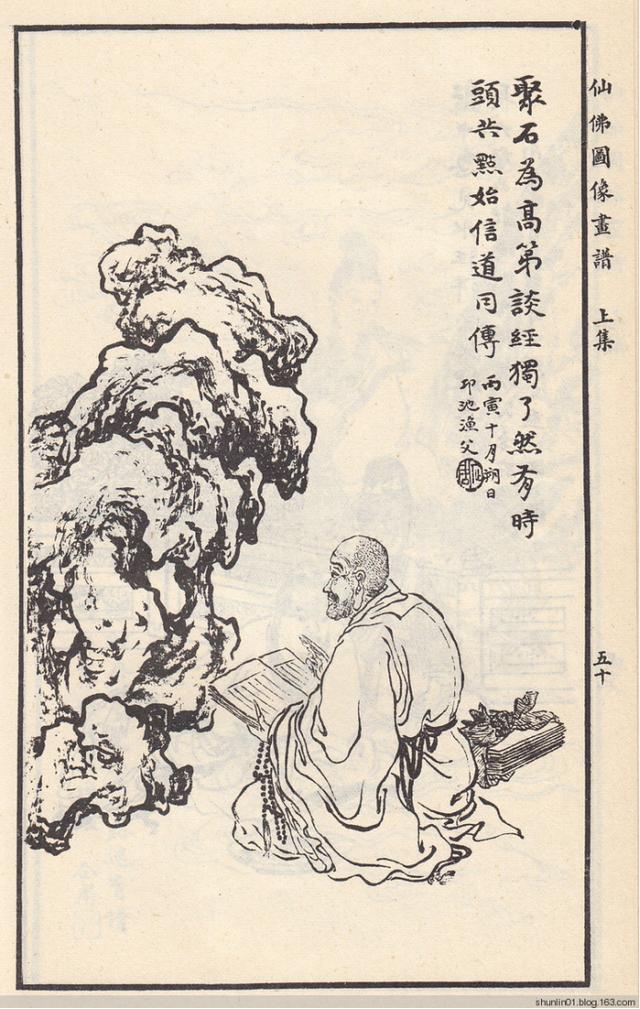 仙佛圖像畫譜 上集 五十
聚石為高第談經獨了然有時
頭共點始信道同傳
丙寅十月朔日
邛池漁父
shunlin01.blog.163.com